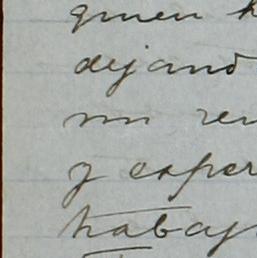 quien
dejando
un
y esper
trabaj